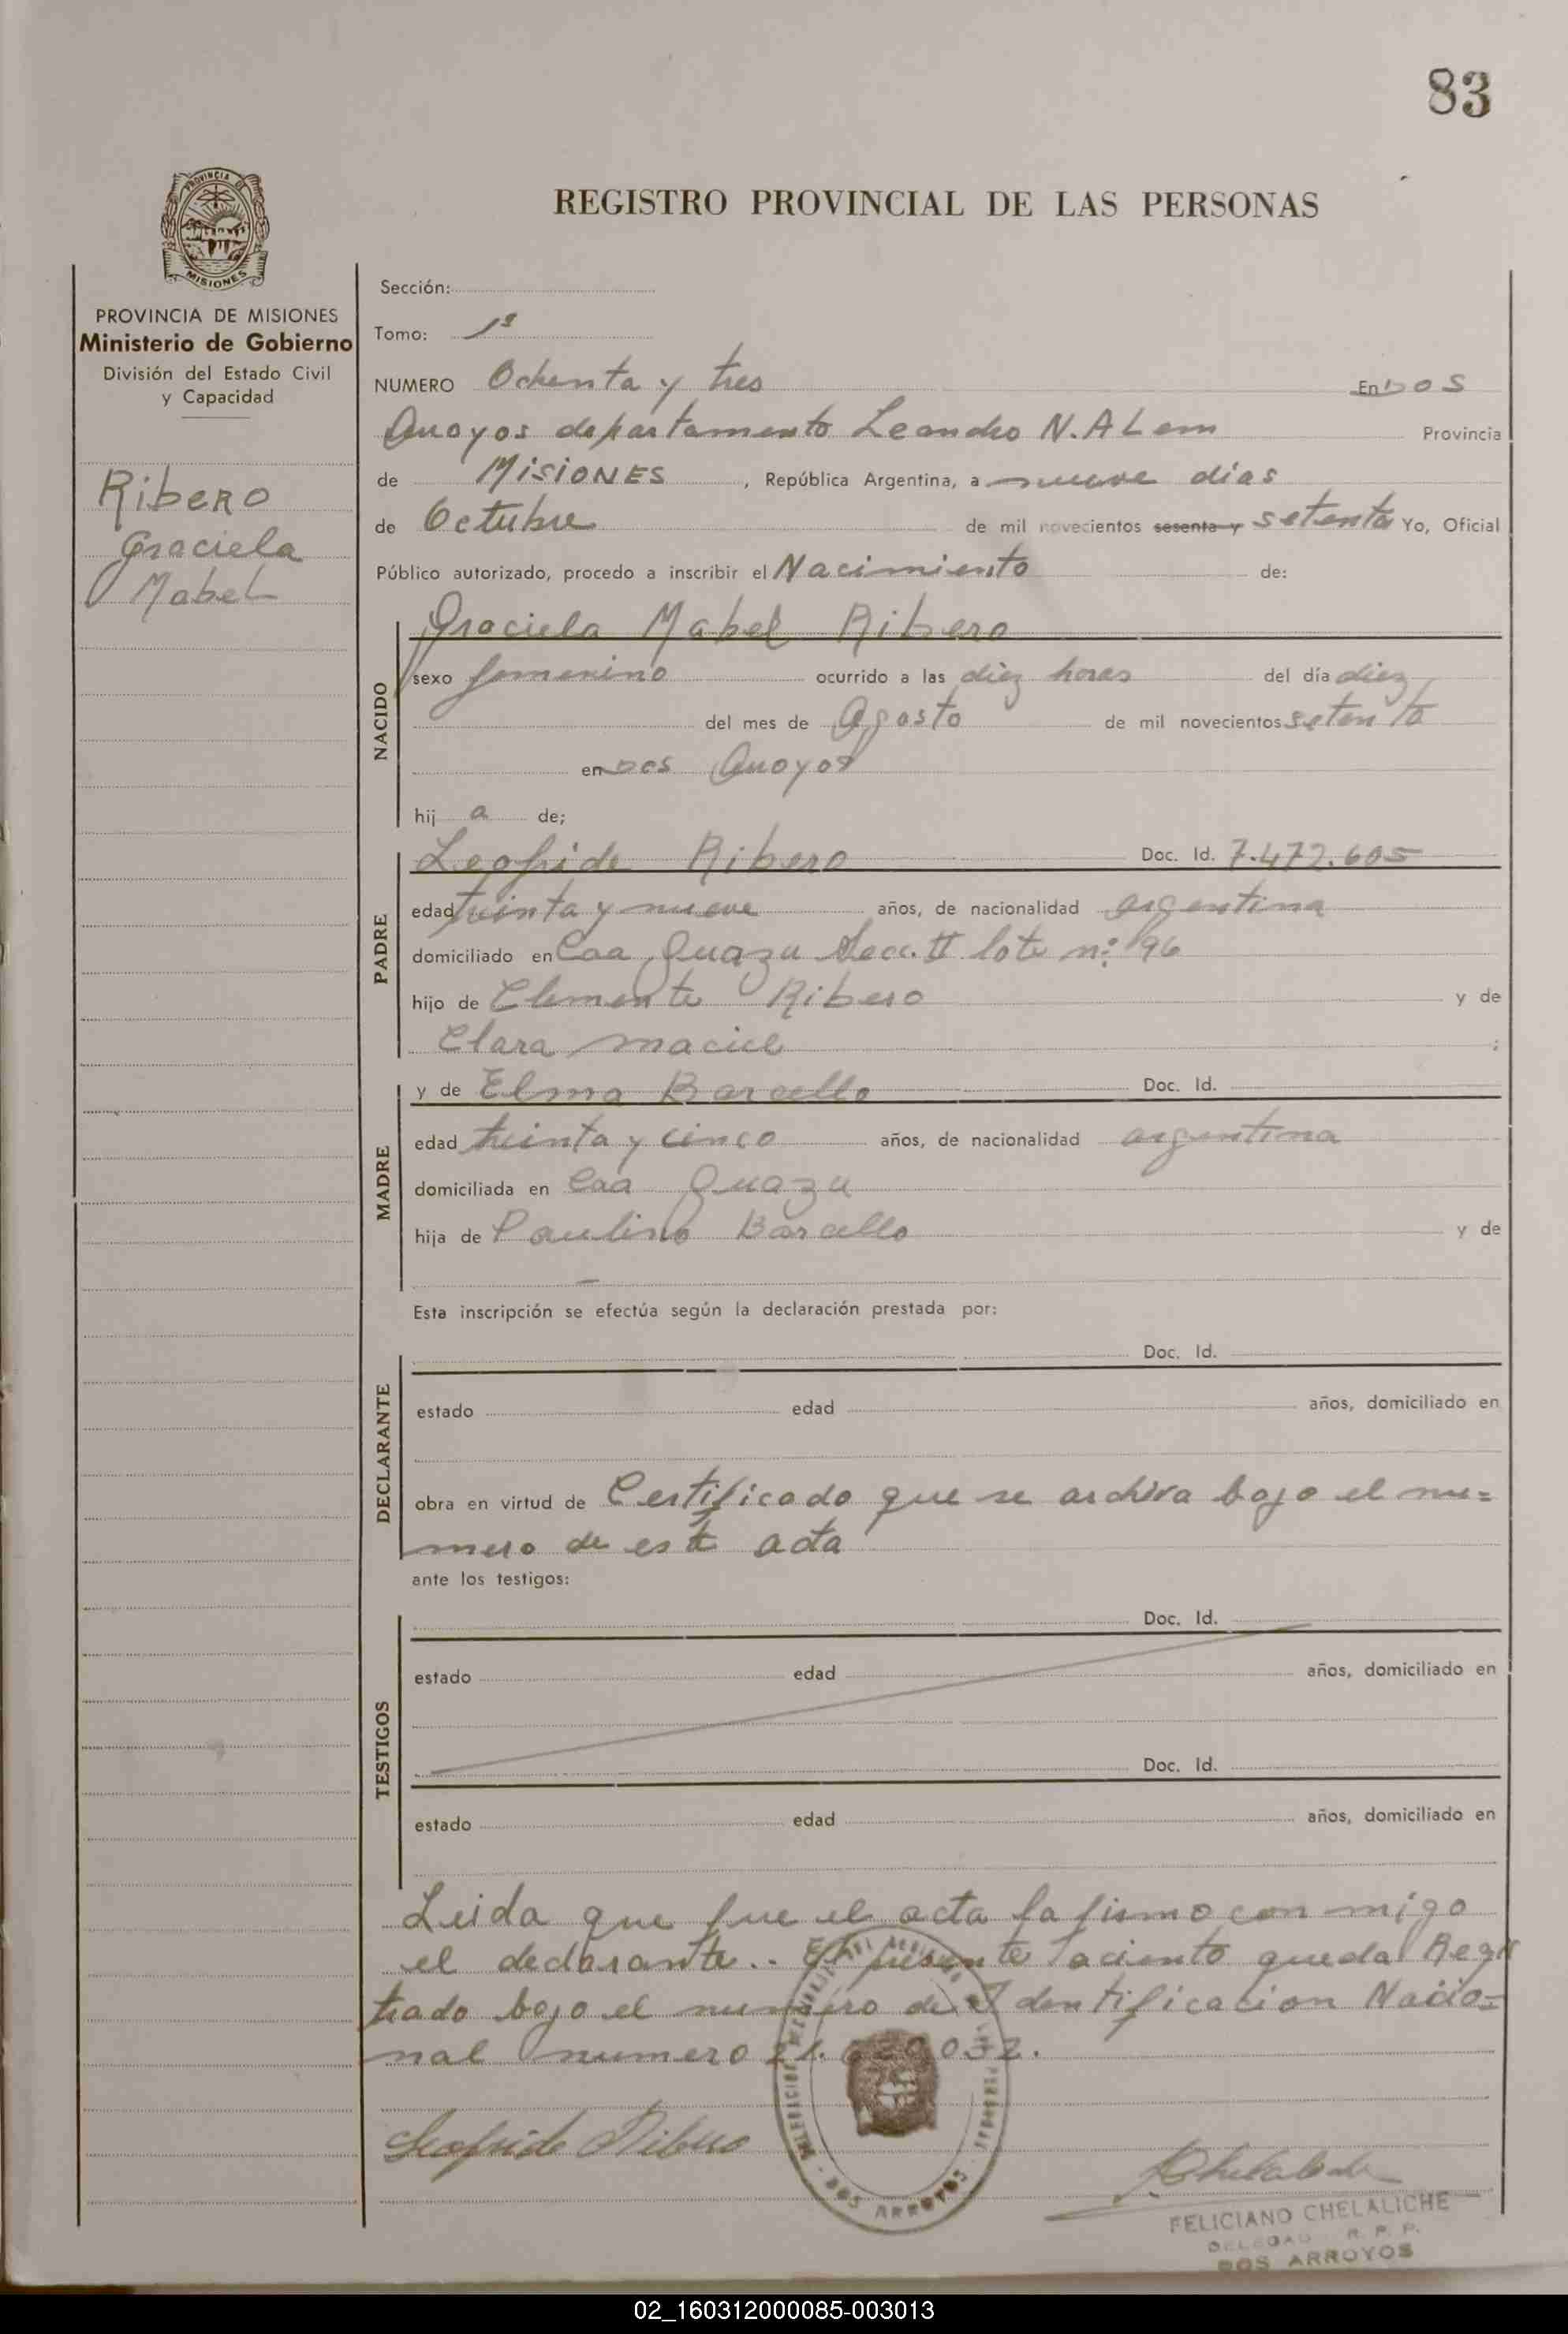 83
PROVINCIA DE
MISIONES
REGISTRO PROVINCIAL DE LAS PERSONAS
PROVINCIA DE MISIONES
Ministerio de Gobierno
División del Estado Civil
y Capacidad
Ribero
Graciela
Mabel
Sección:
Tomo: 1º
NUMERO Ochenta y tres En DOS
Arroyos departamento Leandro N. ALem Provincia
de MISIONES, República Argentina, a nueve dias
de Octubre de mil novecientos sesenta y setenta Yo, Oficial
Público autorizado, procedo a inscribir el Nacimiento de:
NACIDO
Graciela Mabel Ribero
sexo femenino ocurrido a las diez horas del día diez
del mes de Agosto de mil novecientos setenta
en DOS Arroyos
hij a de;
PADRE
Leofride Ribero Doc. Id. 7.472.605
edad treinta y nueve años, de nacionalidad argentina
domiciliado en Caa Guazu Secc. II lote nº 196
hijo de Clemente Ribero y de
Clara maciel ;
MADRE
y de Elma Barcello Doc. Id.
edad treinta y cinco años, de nacionalidad argentina
domiciliada en Caa Guazu
hija de Paulino Barcello y de
Esta inscripción se efectúa según la declaración prestada por:
DECLARANTE
Doc. Id.
estado edad años, domiciliado en
obra en virtud de Certificado que se archiva bajo el nu=
mero de este acta
ante los testigos:
TESTIGOS
Doc. Id.
estado edad años, domiciliado en
Doc. Id.
estado edad años, domiciliado en
Leida que fue el acta la firmo con migo
el declarante.. El presente naciento queda Regis
trado bajo el numero de Identificacion Nacio=
nal numero 21. 032.
Leofride Ribero
DOS ARROYOS
FELICIANO CHELALICHE
DELEGADO R. P. P.
DOS ARROYOS
02_160312000085-003013